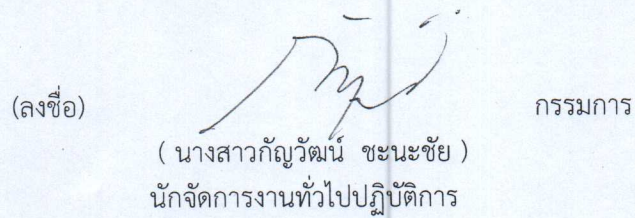 (ลงชื่อ) กรรมการ
( นางสาวกัญวัฒน์ ชะนะชัย )
นักจัดการงานทั่วไปปฏิบัติการ